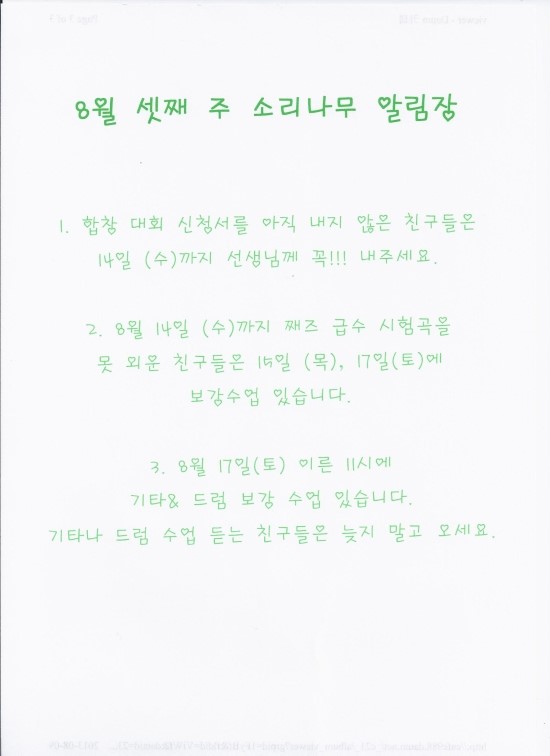 8월 셋째 주 소리나무 알림장
1. 합창 대회 신청서를 아직 내지 않은 친구들은
14일 (수)까지 선생님께 꼭!!! 내주세요.
2. 8월 14일 (수)까지 째즈 급수 시험곡을
못 외운 친구들은 15일 (목), 17일(토)에
보강수업 있습니다.
3. 8월 17일(토) 이른 11시에
기타& 드럼 보강 수업 있습니다.
기타나 드럼 수업 듣는 친구들은 늦지 말고 오세요.